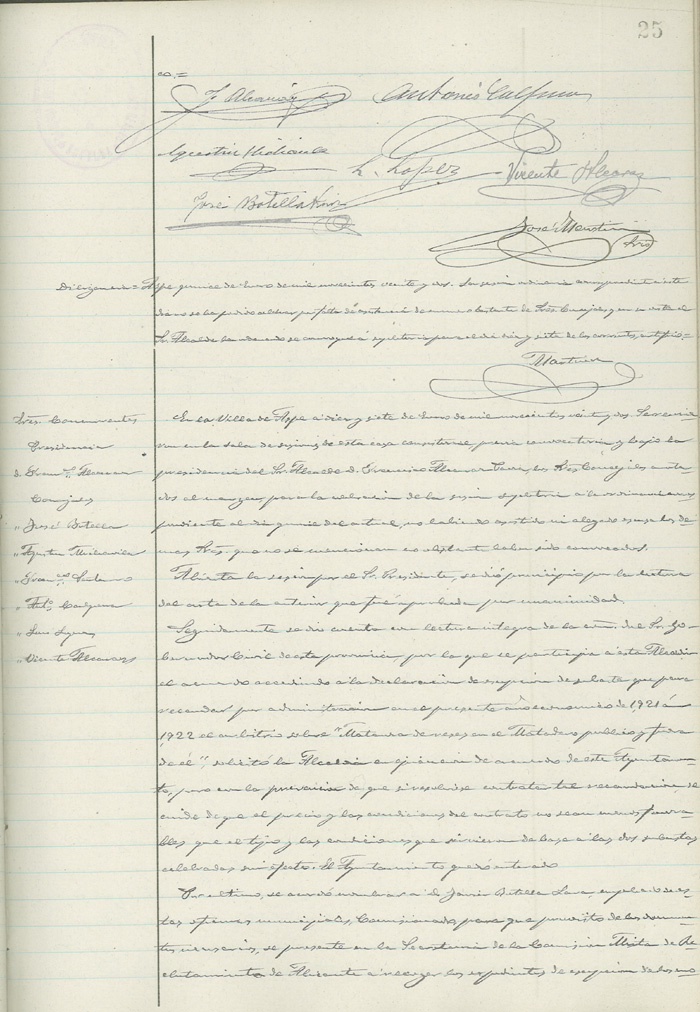 25
co.=
F. Alcaraz
Antonio Calpena
Agustin Mirarvila
L. Lopez
Vicente Alcaraz
José Botella
José Mautin
Srio
Diligencia = Aspe quince de Enero de mil novecientos veinte y dos. La sesion ordinaria correspondiente a este
dia no se ha podido celebrar por falta de asistencia de numero bastante de Sres. Concejales, y en su vista el
Sr. Alcalde ha mandado se convoque á supletoria para el dia diez y siete de los corrientes, certifico=
Mautin
Sres. Concurrentes
Presidencia
D. Fran.co Alcaraz
Concejales
" José Botella
" Agustin Mirarvila
" Fran.co
" Ant.o Calpena
" Luis
" Vicente Alcaraz
En la Villa de Aspe a diez y siete de Enero de mil novecientos veinte y dos. Se reunie
ron en la sala de sesiones de esta casa consistorial, previa convocatoria y bajo la
presidencia del Sr. Alcalde D. Francisco Alcaraz, los Sres. Concejales anota
dos al margen para la celebracion de la sesion supletoria a la ordinaria corres
pondiente al dia quince del actual, no habiendo asistido ni alegado escusa los de
mas Sres. que no se mencionan no obstante haber sido convocados.
Abierta la sesion por el Sr. Presidente, se dió principio por la lectura
del acta de la anterior que fué aprobada por unanimidad.
Seguidamente se dió cuenta con lectura integra de la com. del Sr. Go-
bernador Civil de esta provincia por la que se participa a esta Alcaldia
el acuerdo accediendo a la declaracion de escepcion de subasta que para
recaudar por administracion en el presente año economico de 1921 á
1922 el arbitrio sobre "Matanza de reses en el Matadero publico y fuera
de él", solicitó la Alcaldia en ejecucion de acuerdo de este Ayuntamien
to, pero con la prevencion de que si resolviese contratar tal recaudacion, se
cuide de que el precio y las condiciones del contrato no sean menos favora
bles que el tipo y las condiciones que sirvieron de base a las dos subastas
celebradas sin efecto. El Ayuntamiento quedó enterado
Por ultimo, se acordó nombrar a D. Javier Botella, empleado de es
tas oficinas municipales, Comisionado para que provisto de los documen
tos necesarios, se presente en la Secretaria de la Comision Mixta de Re
clutamiento de Alicante a recoger los espedientes de escepcion de los mo